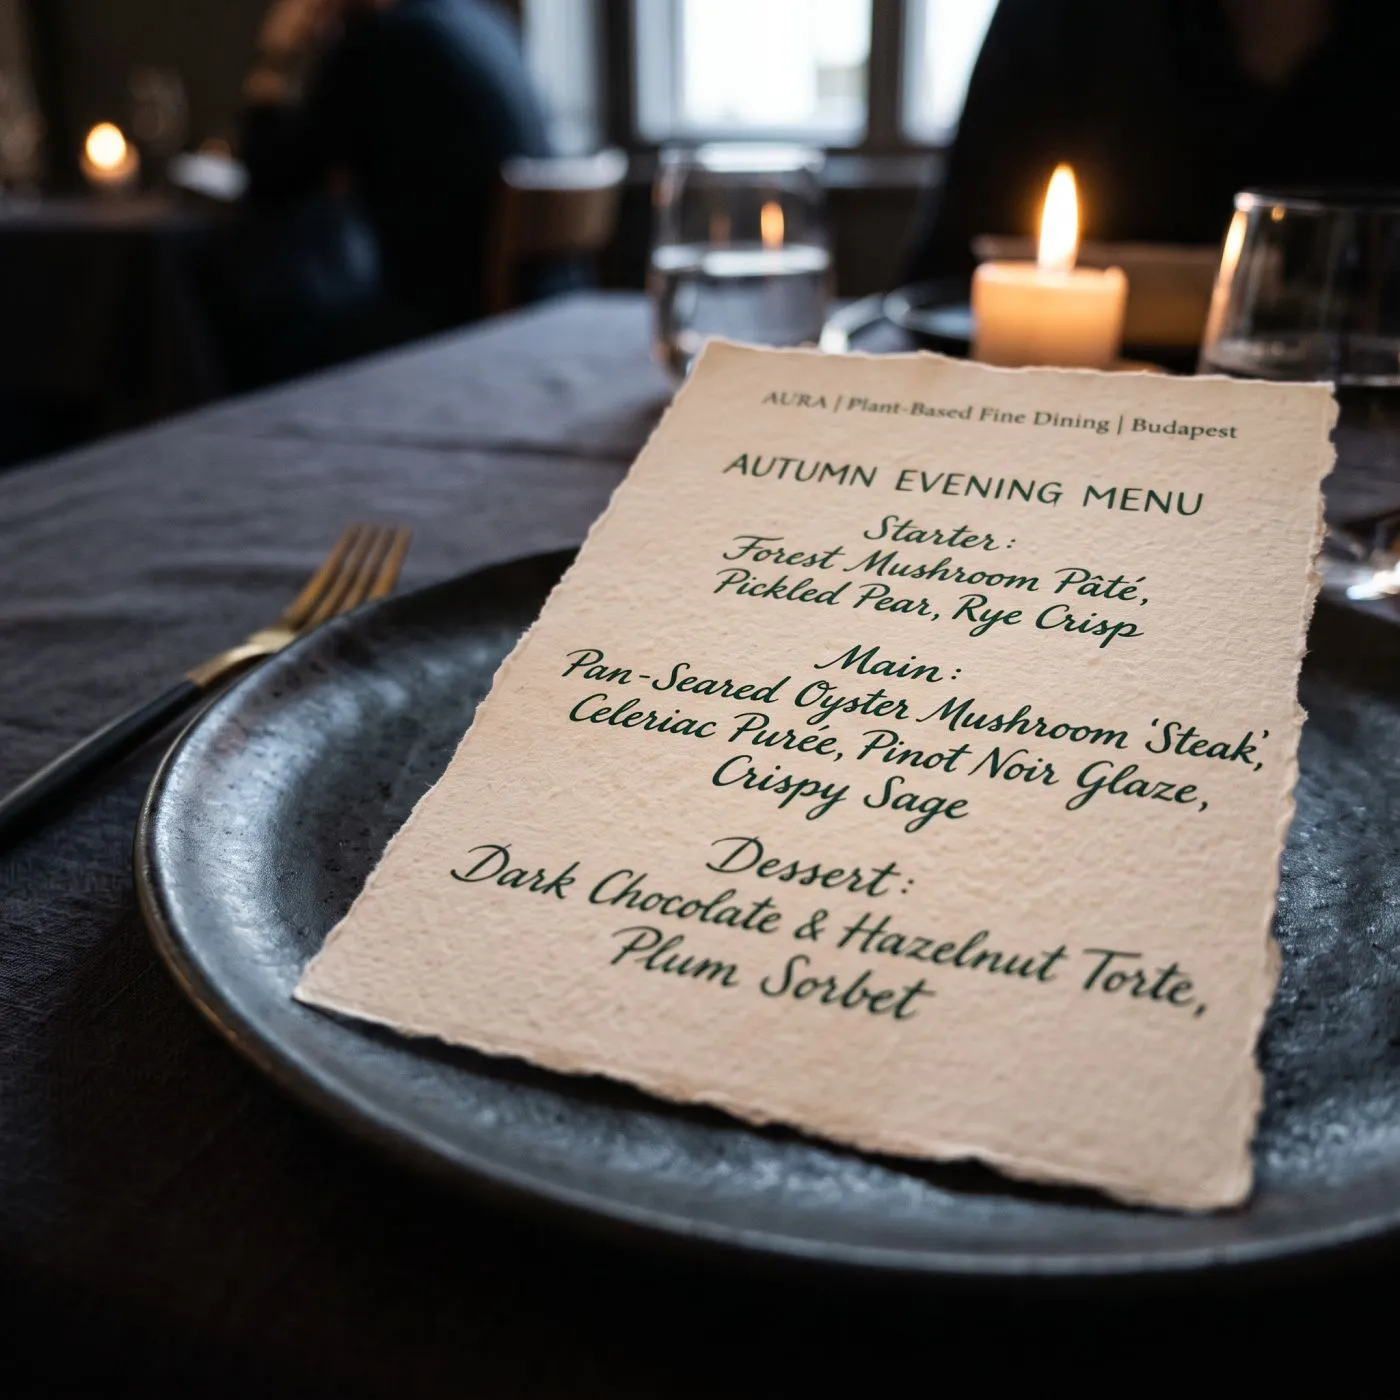 AURA | Plant-Based Fine Dining | Budapest
AUTUMN EVENING MENU
Starter:
Forest Mushroom Pâté,
Pickled Pear, Rye Crisp
Main:
Pan-Seared Oyster Mushroom 'Steak',
Celeriac Purée, Pinot Noir Glaze,
Crispy Sage
Dessert:
Dark Chocolate & Hazelnut Torte,
Plum Sorbet